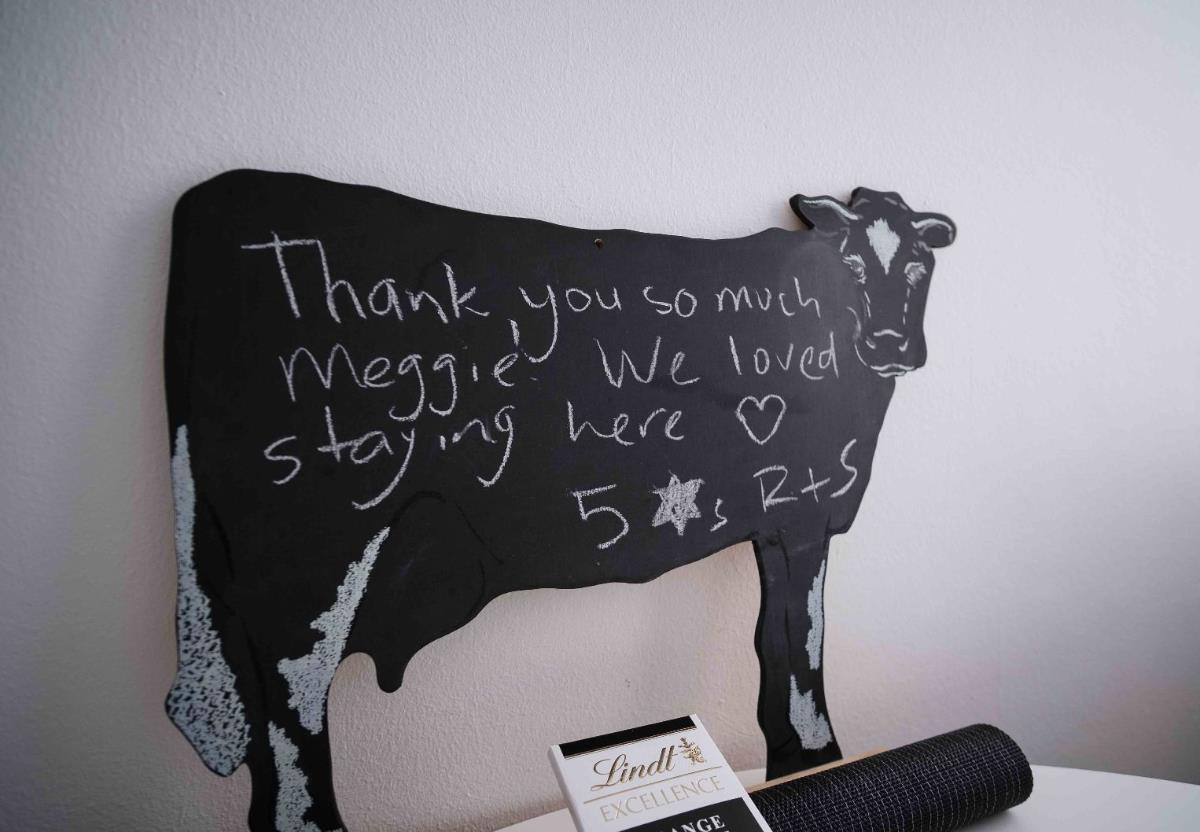 Thank you so much
Meggie! We loved
staying here ♡
5 ★s R+S
Lindt
EXCELLENCE
ANGE